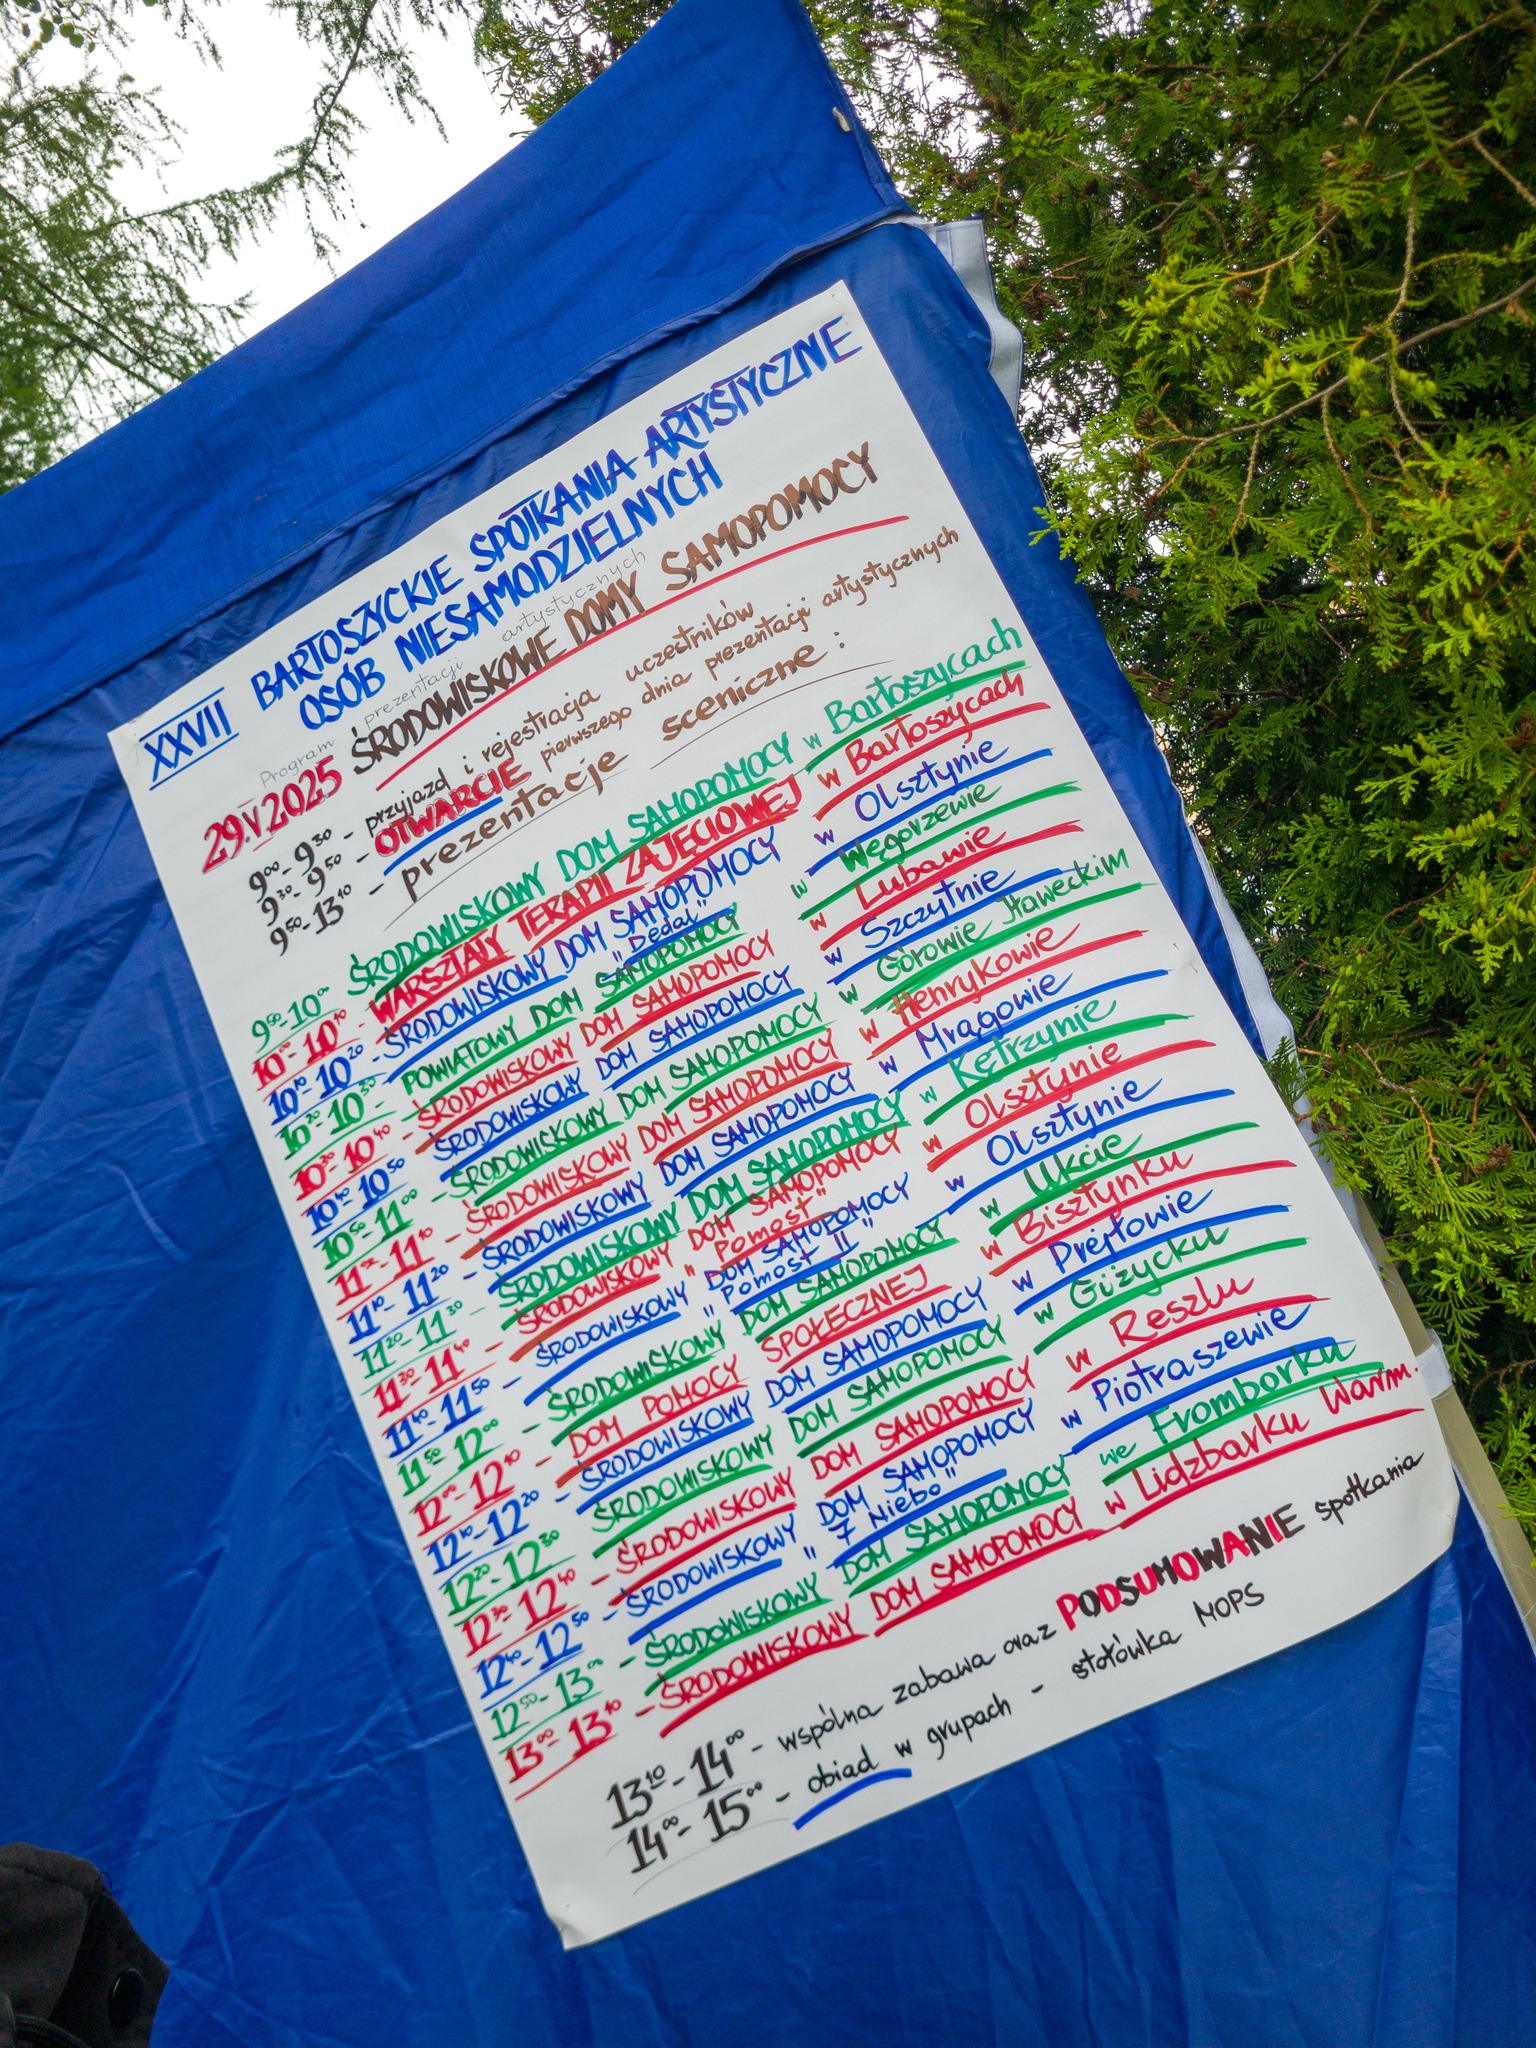 XXVII BARTOSZYCKIE SPOTKANIA ARTYSTYCZNE
OSÓB NIESAMODZIELNYCH
Program prezentacji artystycznych
29.V.2025 ŚRODOWISKOWE DOMY SAMOPOMOCY
9⁰⁰-9³⁰ - przyjazd i rejestracja uczestników
9³⁰-9⁵⁰ - OTWARCIE pierwszego dnia prezentacji artystycznych
9⁵⁰-13¹⁰ - prezentacje sceniczne:
9⁵⁰-10⁰⁰ ŚRODOWISKOWY DOM SAMOPOMOCY w Bartoszycach
10⁰⁰-10¹⁰ - WARSZTATY TERAPII ZAJĘCIOWEJ w Bartoszycach
10¹⁰-10²⁰ - ŚRODOWISKOWY DOM SAMOPOMOCY "Dedal" w Olsztynie
10²⁰-10³⁰ - POWIATOWY DOM SAMOPOMOCY w Węgorzewie
10³⁰-10⁴⁰ - ŚRODOWISKOWY DOM SAMOPOMOCY w Lubawie
10⁴⁰-10⁵⁰ - ŚRODOWISKOWY DOM SAMOPOMOCY w Szczytnie
10⁵⁰-11⁰⁰ - ŚRODOWISKOWY DOM SAMOPOMOCY w Górowie Iławeckim
11⁰⁰-11¹⁰ - ŚRODOWISKOWY DOM SAMOPOMOCY w Henrykowie
11¹⁰-11²⁰ - ŚRODOWISKOWY DOM SAMOPOMOCY w Mrągowie
11²⁰-11³⁰ - ŚRODOWISKOWY DOM SAMOPOMOCY w Kętrzynie
11³⁰-11⁴⁰ - ŚRODOWISKOWY DOM SAMOPOMOCY "Pomost" w Olsztynie
11⁴⁰-11⁵⁰ - ŚRODOWISKOWY DOM SAMOPOMOCY "Pomost II" w Olsztynie
11⁵⁰-12⁰⁰ - ŚRODOWISKOWY DOM SAMOPOMOCY w Ukcie
12⁰⁰-12¹⁰ - DOM POMOCY SPOŁECZNEJ w Bisztynku
12¹⁰-12²⁰ - ŚRODOWISKOWY DOM SAMOPOMOCY w Prejłowie
12²⁰-12³⁰ ŚRODOWISKOWY DOM SAMOPOMOCY w Giżycku
12³⁰-12⁴⁰ - ŚRODOWISKOWY DOM SAMOPOMOCY w Reszlu
12⁴⁰-12⁵⁰ - ŚRODOWISKOWY DOM SAMOPOMOCY "7 Niebo" w Piotraszewie
12⁵⁰-13⁰⁰ - ŚRODOWISKOWY DOM SAMOPOMOCY we Fromborku
13⁰⁰-13¹⁰ - ŚRODOWISKOWY DOM SAMOPOMOCY w Lidzbarku Warm.
13¹⁰-14⁰⁰ - wspólna zabawa oraz PODSUMOWANIE spotkania
14⁰⁰-15⁰⁰ - obiad w grupach - stołówka MOPS